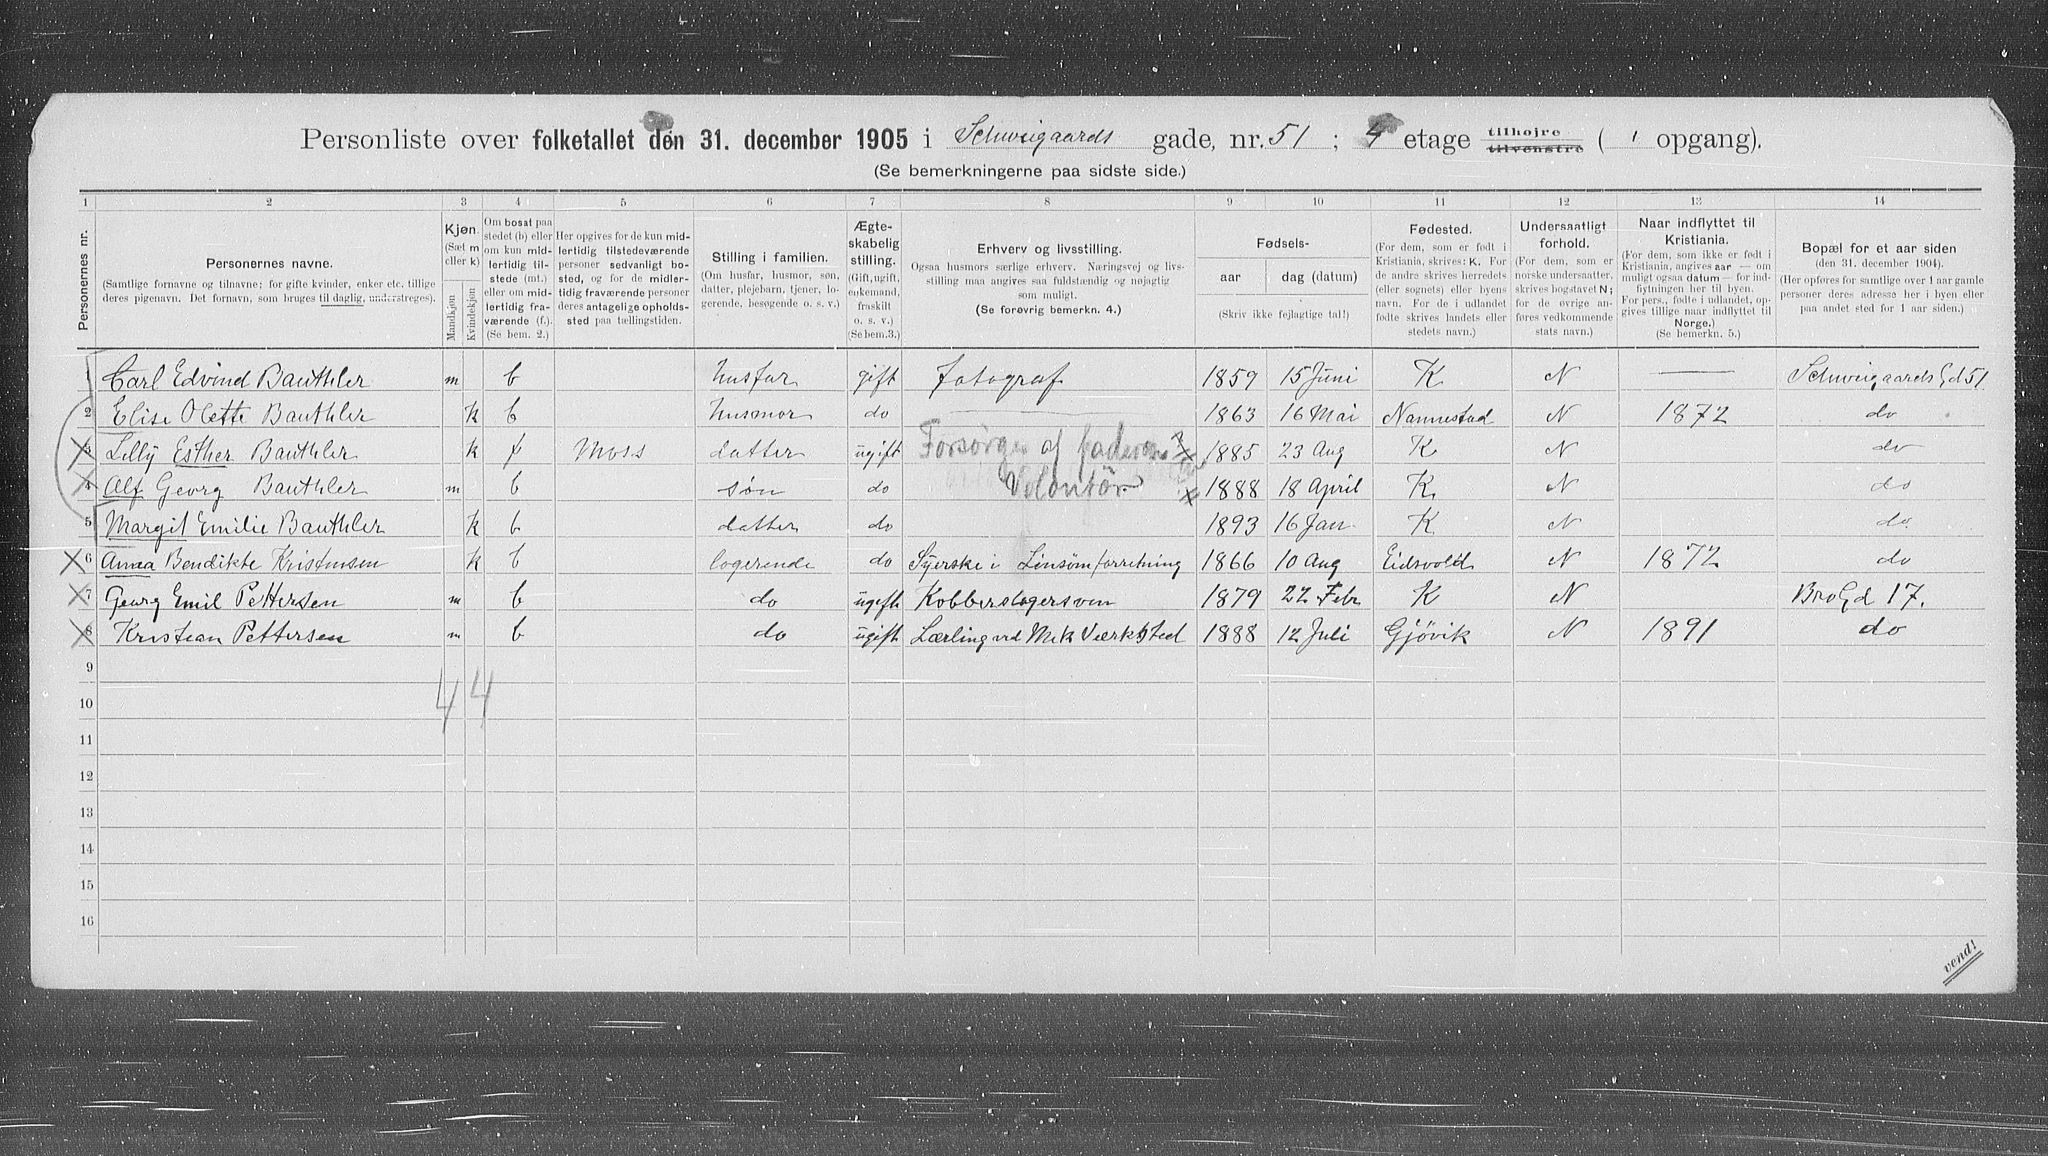 Personliste over folketallet den 31. december 1905 i Schweigaards gade, nr. 51 ; 4 etage tilhøjre tilvenstre ( 1 opgang).
(Se bemerkningerne paa sidste side.)
1 2 3 4 5 6 7 8 9 10 11 12 13 14
Personernes nr.
Personernes navne.
(Samtlige fornavne og tilnavne; for gifte kvinder, enker etc. tillige deres pigenavn. Det fornavn, som bruges til daglig, understreges).
Kjøn.
(Sæt m eller k)
Mandkjøn
Kvindekjøn
Om bosat paa stedet (b) eller om kun midlertidig tilstede (mt.) eller om midlertidig fraværende (f.). (Se bem. 2.)
Her opgives for de kun midlertidig tilstedeværende personer sedvanlig bosted, og for de midlertidig fraværende personer deres antagelige opholdssted paa tællingstiden.
Stilling i familien.
(Om husfar, husmor, søn, datter, plejebarn, tjener, logerende, besøgende o. s. v.)
Ægteskabelig stilling.
(Gift, ugift, enkemand, fraskilt o. s. v.)
(Se bem.3.)
Erhverv og livsstilling.
Ogsaa husmors særlige erhverv. Næringsvej og livsstilling maa angives saa fuldstændig og nøjagtig som muligt.
(Se forøvrig bemerkn. 4.)
Fødsels-
aar dag (datum)
(Skriv ikke fejlagtige tal!)
Fødested.
(For dem, som er født i Kristiania, skrives: K. For de andre skrives herredets (eller sognets) eller byens navn. For de i udlandet fødte skrives landets eller stedets navn.)
Undersaatligt forhold.
(For dem, som er norske undersaatter, skrives bogstavet N; for de øvrige anføres vedkommende stats navn.)
Naar indflyttet til Kristiania.
(For dem, som ikke er født i Kristiania, angives aar — om muligt ogsaa datum — for indflytningen her til byen. For pers., fødte i udlandet, opgives tillige naar indflyttet til Norge.)
(Se bemerkn. 5.)
Bopæl for et aar siden
(den 31. december 1904).
(Her opføres for samtlige over 1 aar gamle personer deres adresse her i byen eller paa andet sted for 1 aar siden.)
1 Carl Edvind Bauthler m b husfar gift fotograf 1859 15 Juni K N — Schweigaards Gd 51
2 Elise Olette Bauthler k b husmor do 1863 16 Mai Nannestad N 1872 do
3 Lilly Esther Bauthler k f Moss datter ugift Forsørges af faderen 1885 23 Aug K N do
4 Alf Georg Bauthler m b søn do Volontör 1888 18 April K N do
5 Margit Emilie Bauthler k b datter do 1893 16 Jan K N do
6 Anna Bendikte Kristensen k b logerende do Syerske i Linsømforretning 1866 10 Aug Eidsvold N 1872 do
7 Georg Emil Pettersen m b do ugift Kobberslagersven 1879 22 Febr K N BroGd 17.
8 Kristian Pettersen m b do ugift Lærling ved Mek Værksted 1888 12 Juli Gjøvik N 1891 do
9
4 4
10
11
12
13
14
15
16
vend!